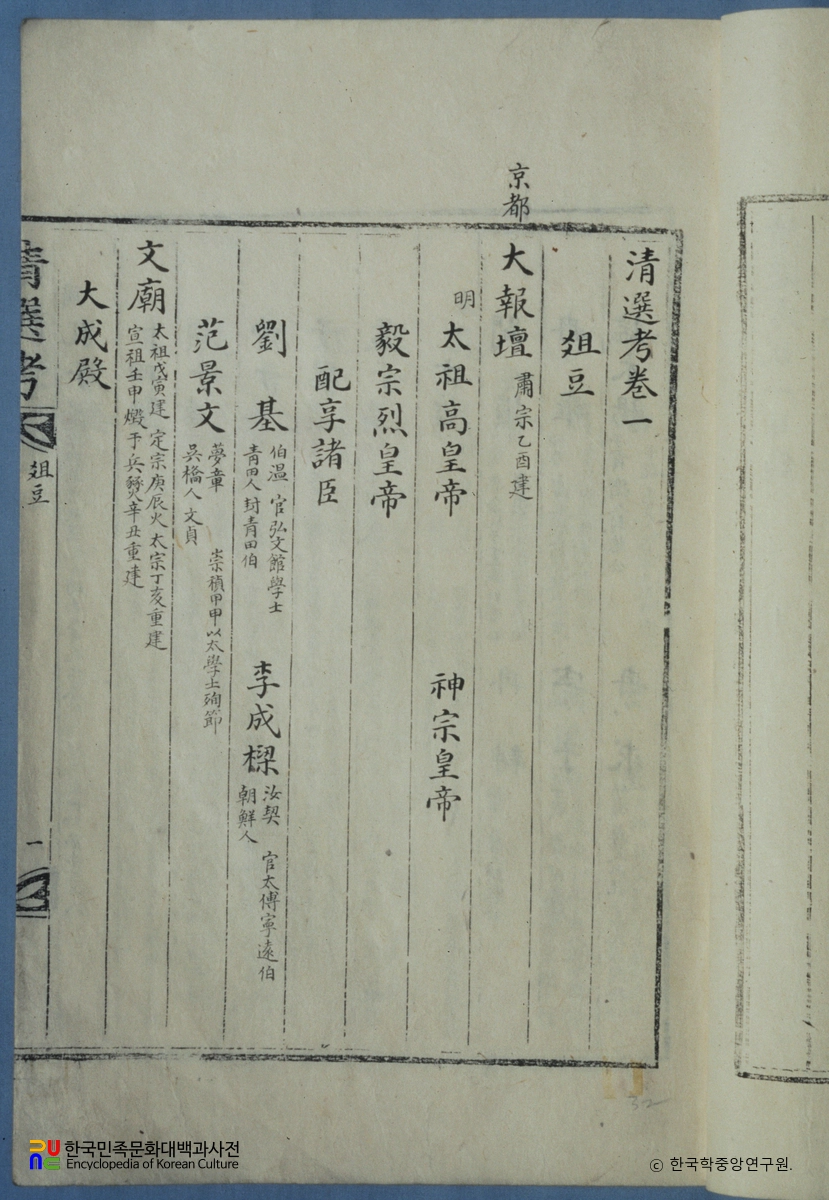 京都
清選考卷一
俎豆
大報壇 肅宗乙酉建
明 太祖高皇帝 神宗皇帝
毅宗烈皇帝
配享諸臣
劉基 伯溫 官弘文館學士 青田人 封青田伯 李成樑 汝契 官太傅寧遠伯 朝鮮人
范景文 夢章 崇禎甲申以太學士殉節 吳橋人 文貞
文廟 太祖戊寅建 定宗庚辰火 太宗丁亥重建
宣祖壬申燬于兵燹辛丑重建
大成殿
清選考
俎豆
一
32
한국민족문화대백과사전
Encyclopedia of Korean Culture
© 한국학중앙연구원.